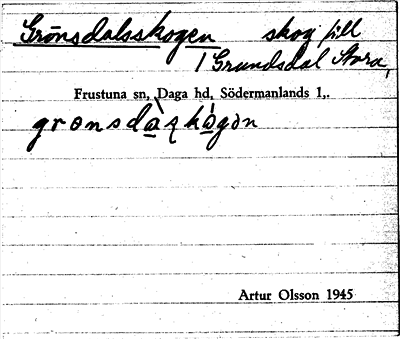 Grönsdalsskogen skog till
1 Grundsdal Stora,
Frustuna sn, Daga hd, Södermanlands l,.
gronsdàskògon
Artur Olsson 1945